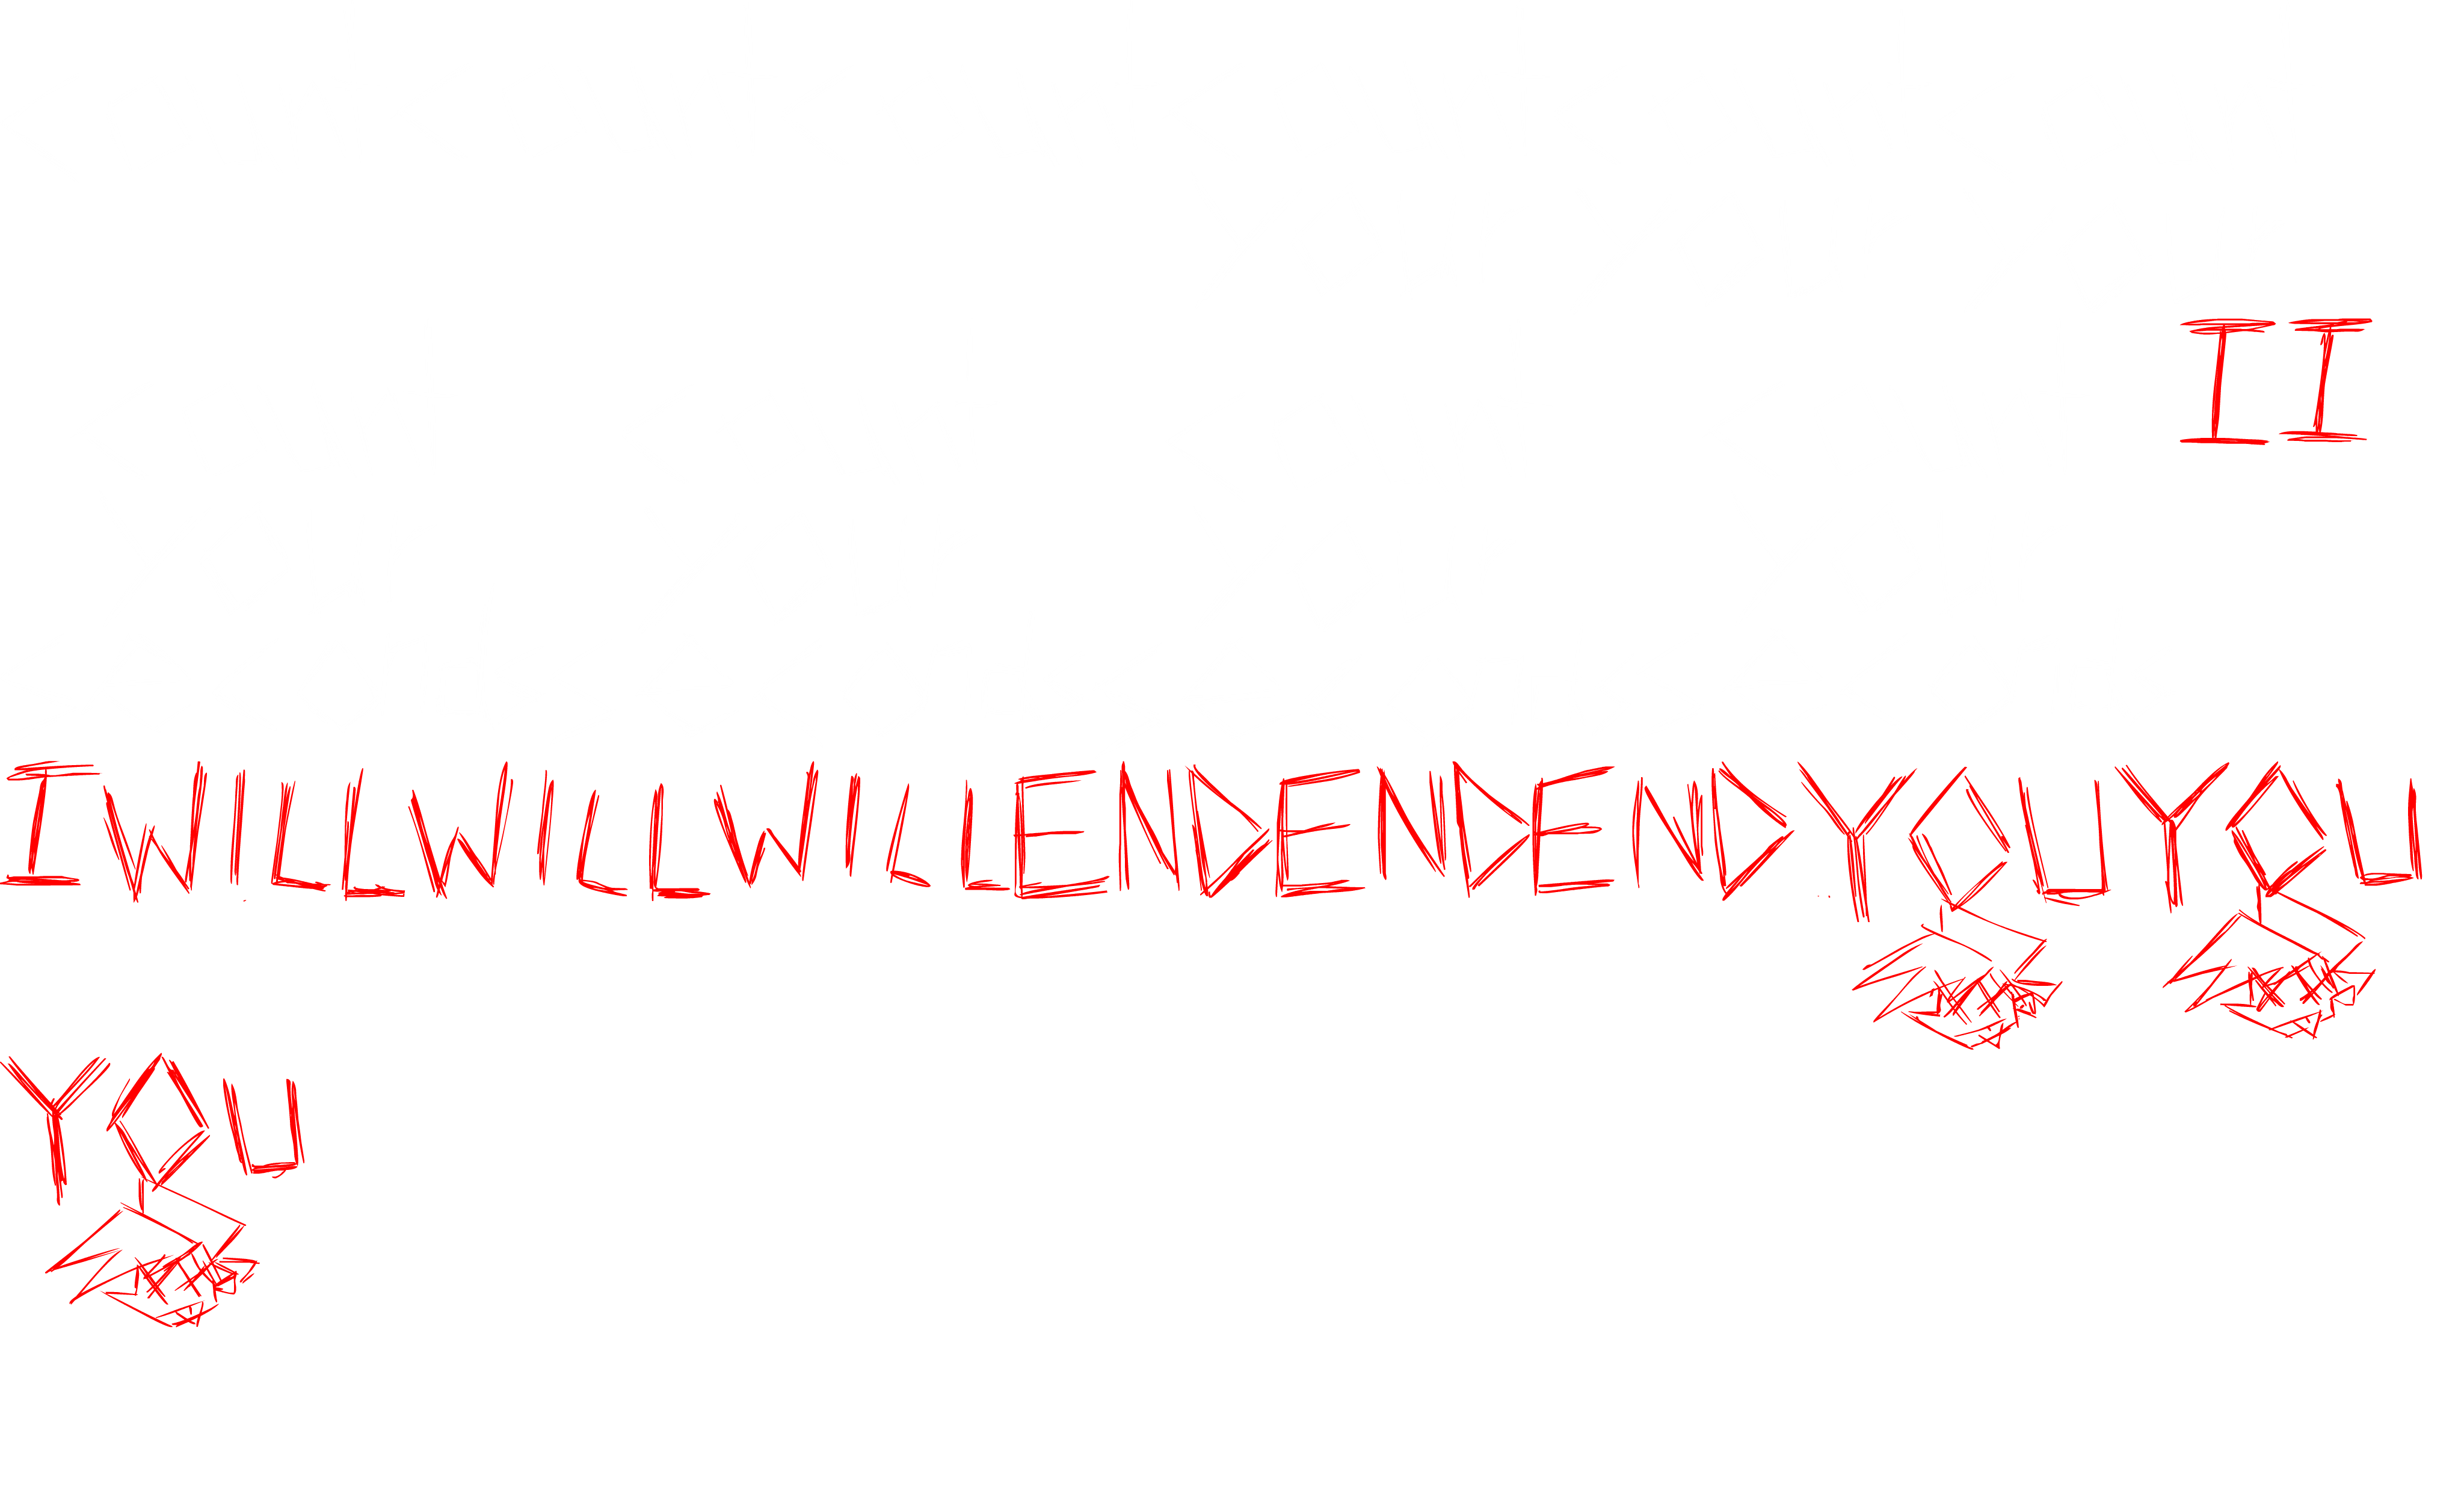 II
IWILLWILLWILLENDENDENDYOUYOU
YOU